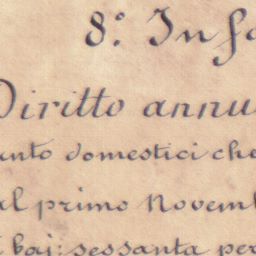 8.° In fo
Diritto annu
anto domestici che
al primo Novemb
baj: sessanta per